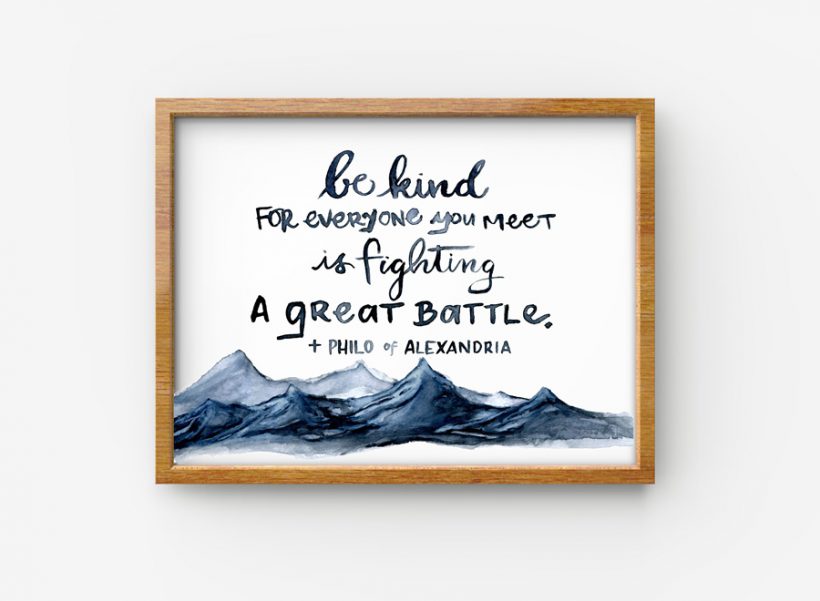 be kind
FOR EVERYONE YOU MEET
is fighting
A GREAT BATTLE.
+ PHILO of ALEXANDRIA